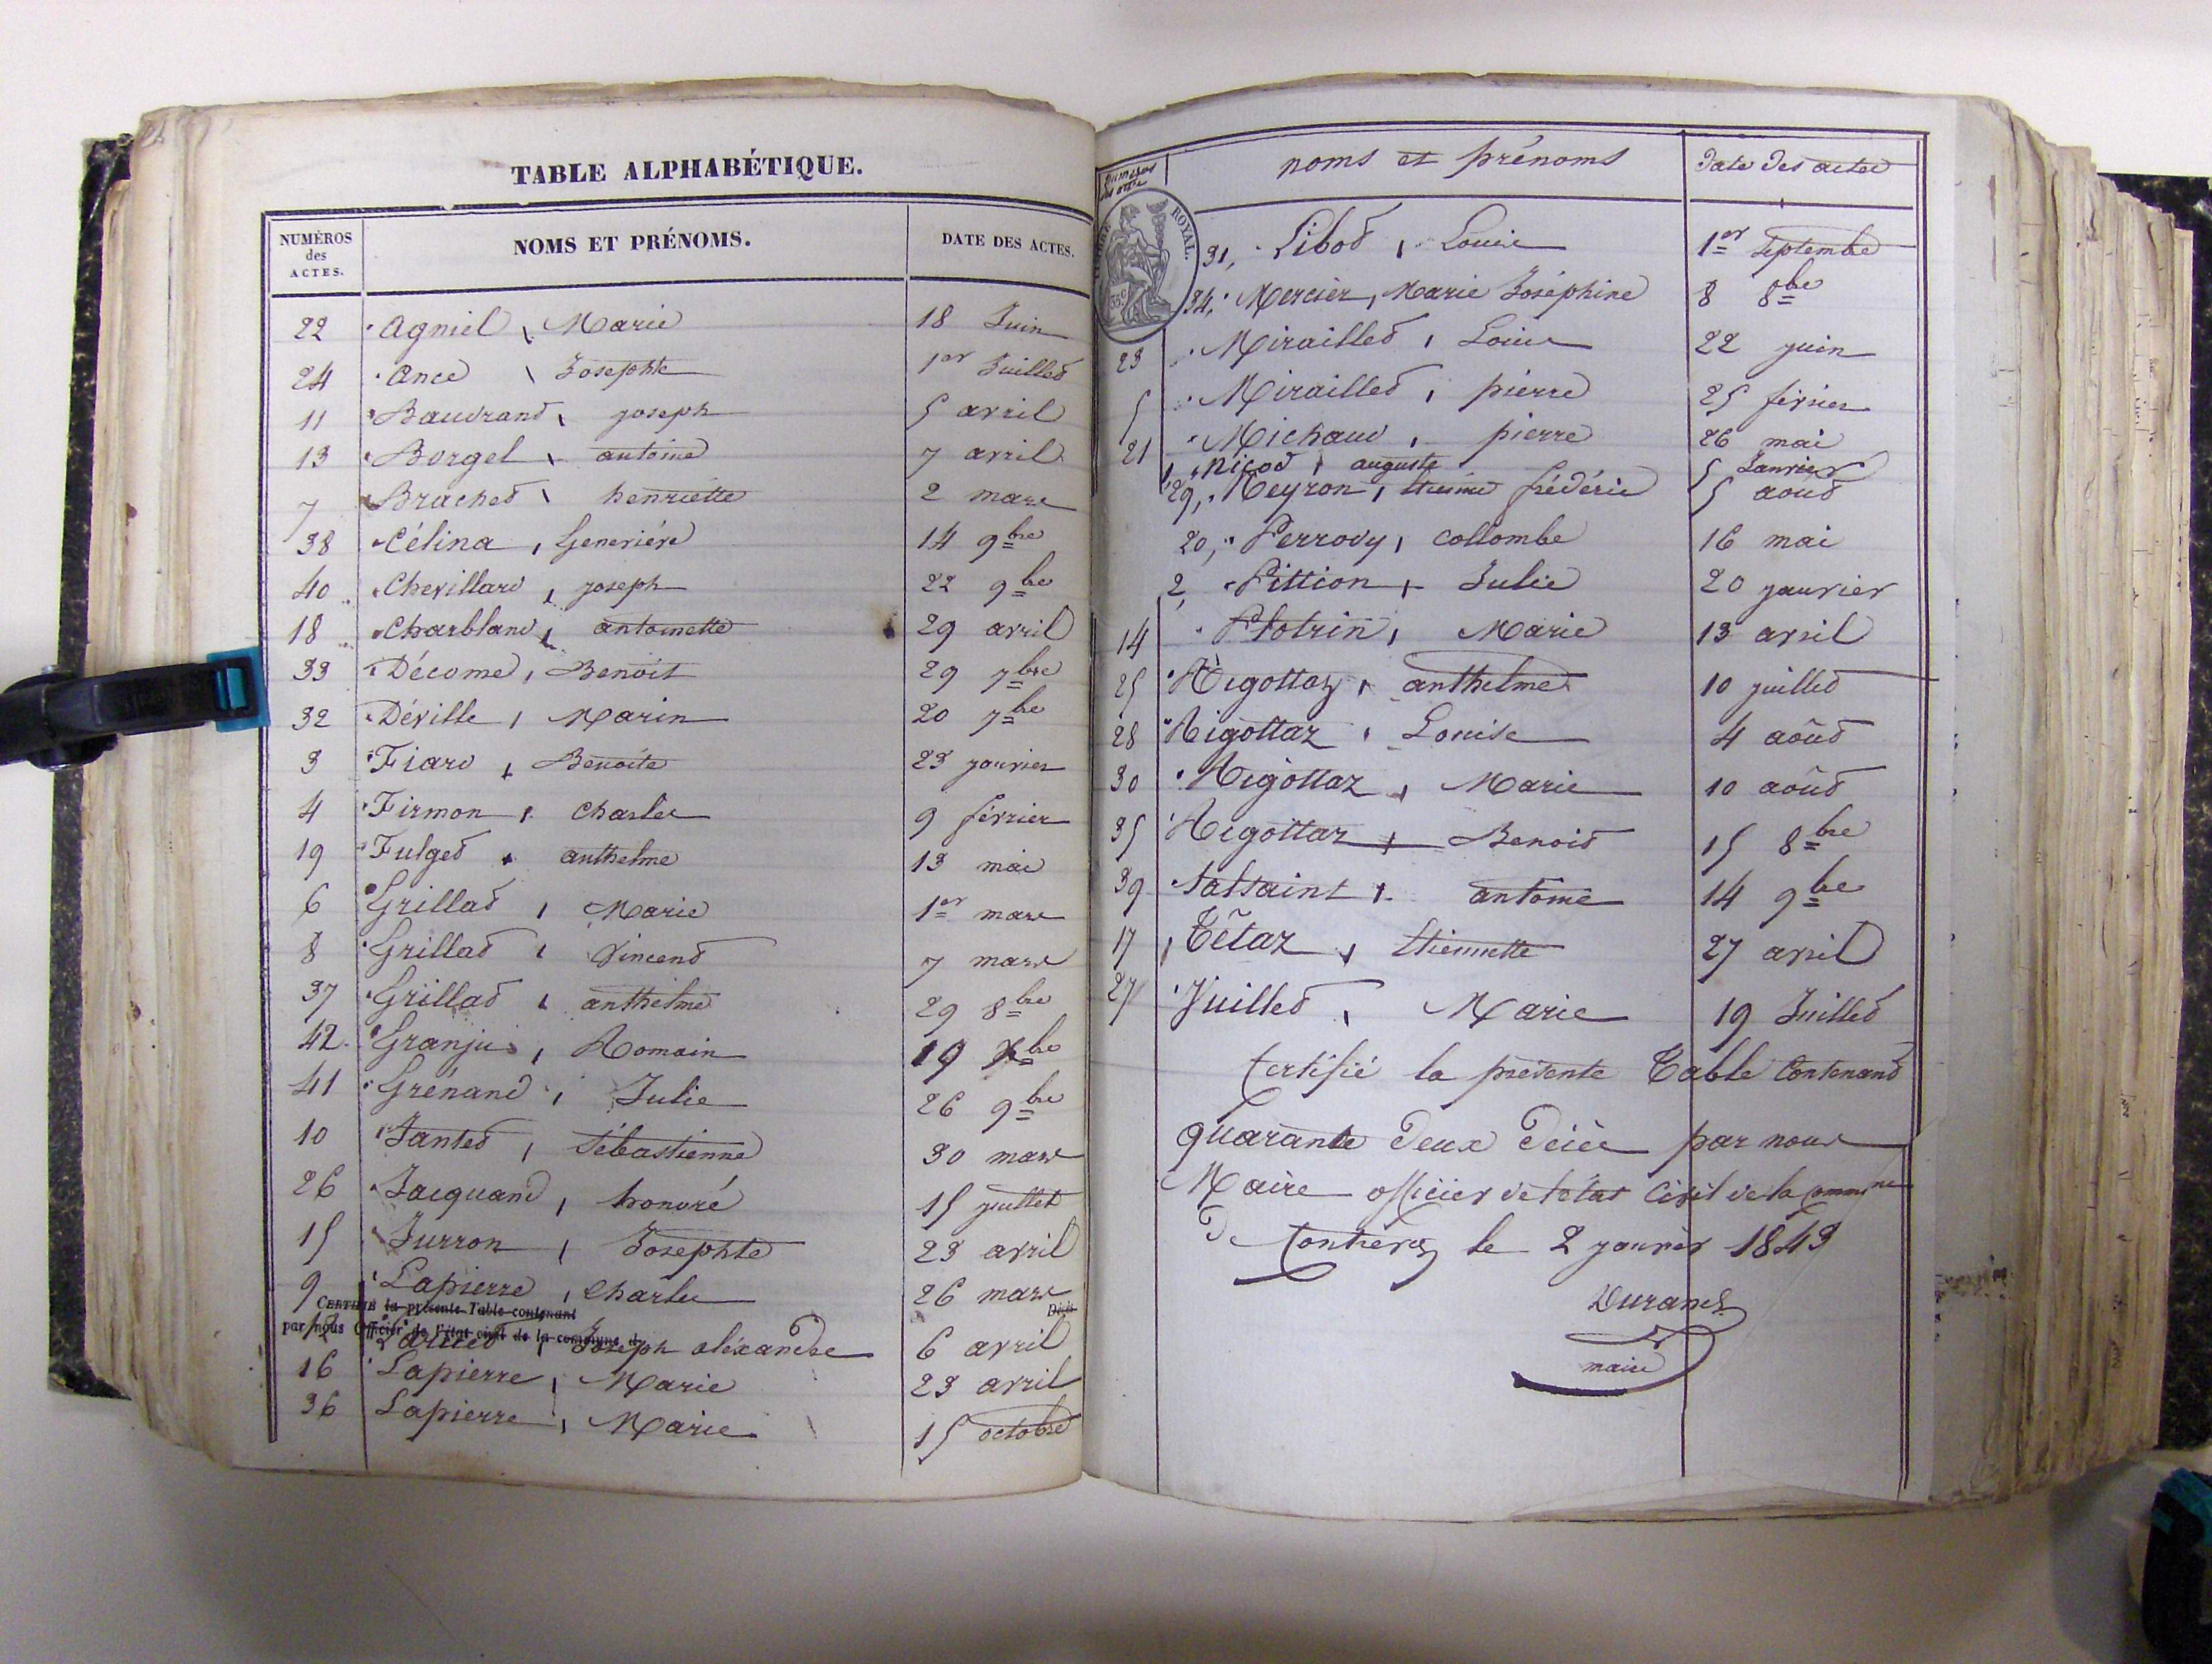 TABLE ALPHABÉTIQUE.
NUMÉROS des ACTES. NOMS ET PRÉNOMS. DATE DES ACTES.
22 Agniel, Marie 18 Juin
24 Ance, Josephte 1er Juillet
11 Baudrand, joseph 5 avril
13 Borgel, antoine 7 avril
7 Brachet, henriette 2 mars
38 Célina, Geneviève 14 9bre
40 Chevillard, joseph 22 9bre
18 Charbland, antoinette 29 avril
33 Décome, Benoit 29 7bre
32 Déville, Marin 20 7bre
3 Fiard, Benoite 23 janvier
4 Firmon, Charles 9 février
19 Fulget, anthelme 13 mai
6 Grillat, Marie 1er mars
8 Grillat, Vincent 7 mars
37 Grillat, anthelme 29 8bre
42 Granju, Romain 19 bre
41 Grénand, Julie 26 9bre
10 Jantet, Sébastienne 30 mars
26 Jacquand, honoré 15 juillet
15 Jurron, Josephte 23 avril
9 Lapierre, Charles 26 mars
CERTIFIÉ la présente Table contenant Décès
par nous Officier de l'état civil de la commune d
Joseph aléxandre 6 avril
16 Lapierre, Marie 23 avril
36 Lapierre, Marie 15 octobre
numéros des actes noms et prénoms date des actes
TIMBRE ROYAL.
35c
31, Libod, Louis 1er Septembre
34, Mercier, Marie Joséphine 8 8bre
23 Miraillet, Louis 22 juin
5 Miraillet, pierre 25 février
21 Michaud, pierre 26 mai
1, Nicod, auguste 5 Janvier
29, Peyron, étienne frédéric 5 août
20, Perrody, Collombe 16 mai
2, Pittion, Julie 20 janvier
14 Plotrin, Marie 13 avril
25 Rigottaz, anthelme 10 juillet
28 Rigottaz, Louise 4 août
30 Rigottaz, Marie 10 août
35 Rigottaz, Benoit 15 8bre
39 Tatsaint, antoine 14 9bre
17 Têtaz, étiennette 27 avril
27 Vuillet, Marie 19 Juillet
Certifié la présente Table Contenant
quarante deux Décès par nous
Maire officier de l'état Civil de la commune
De Contrevoz le 2 janvier 1843
Durand
maire